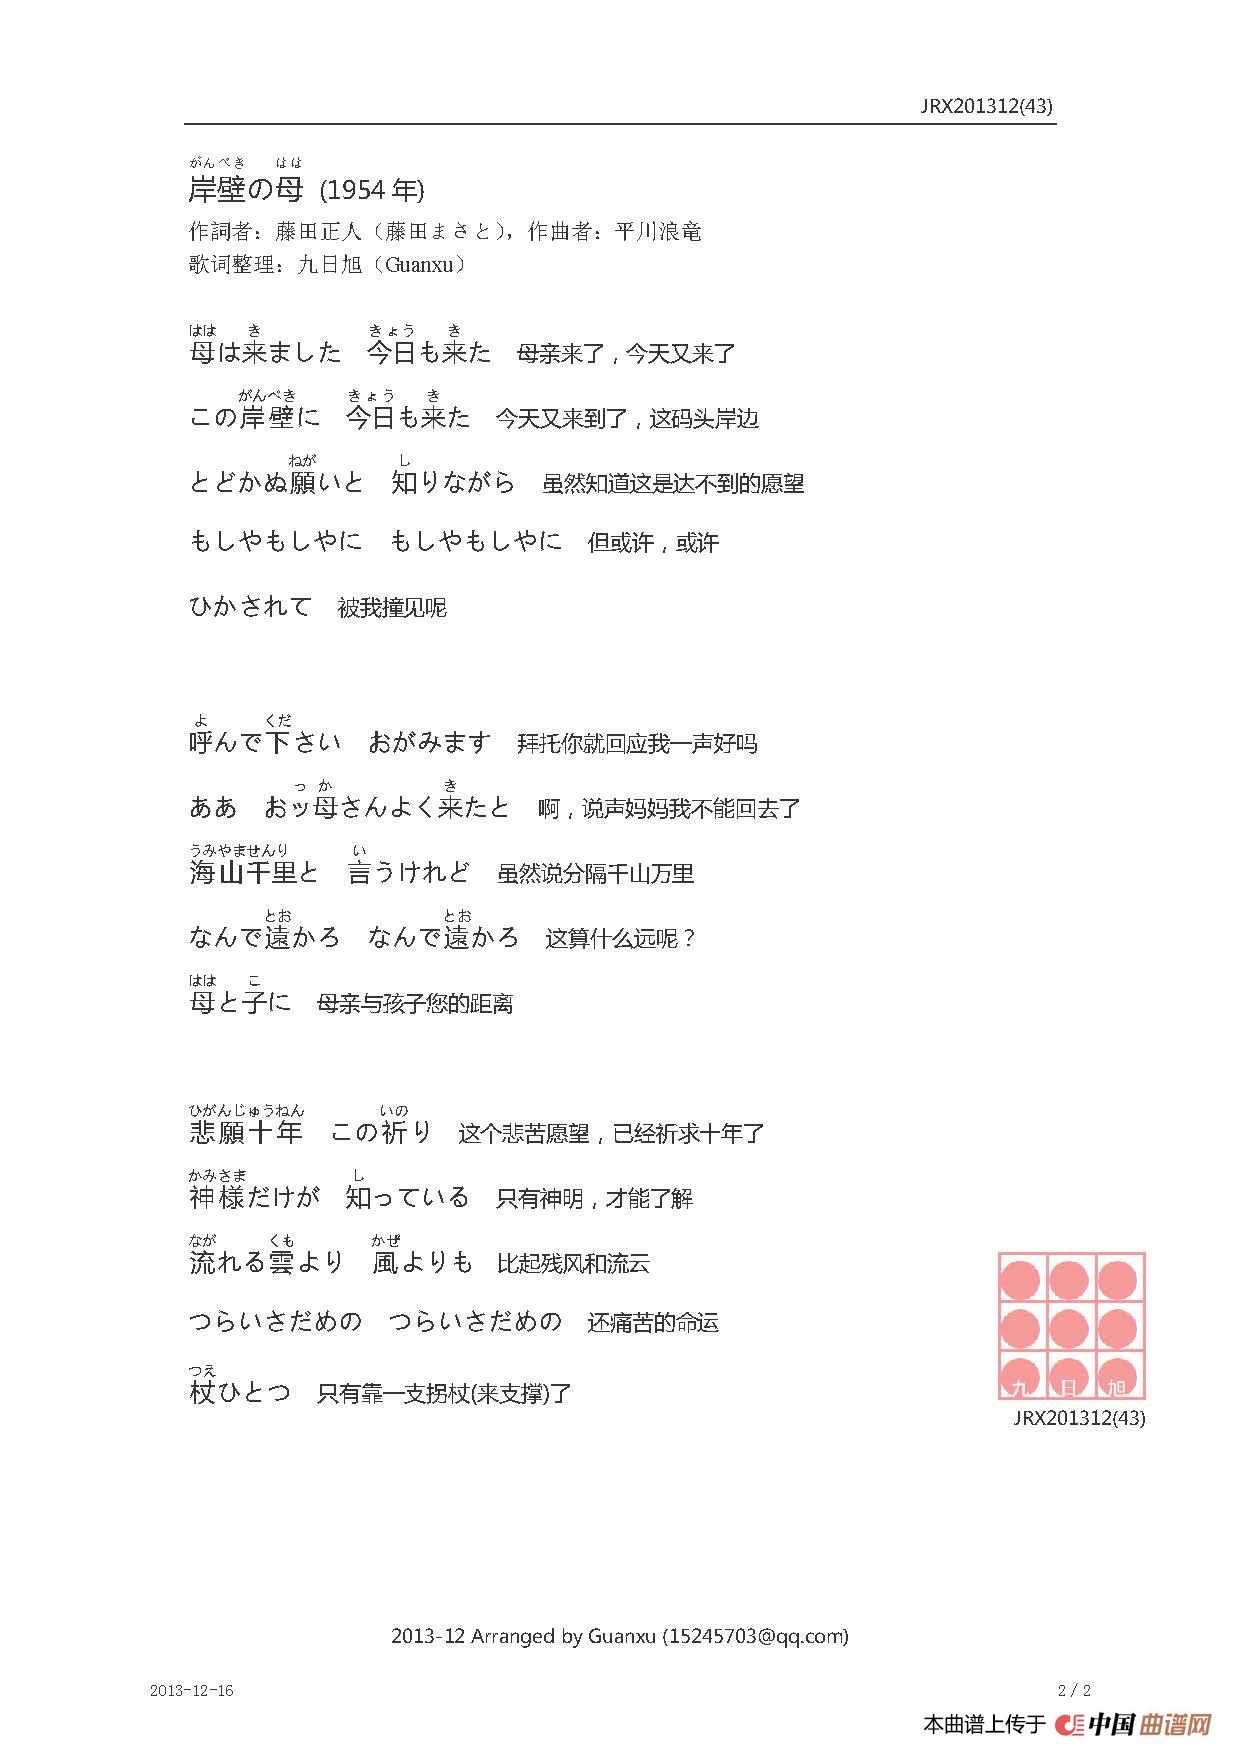 JRX201312(43)
がんぺき はは
岸壁の母 (1954 年)
作詞者：藤田正人（藤田まさと），作曲者：平川浪竜
歌词整理：九日旭（Guanxu）
はは き きょう き
母は来ました 今日も来た 母亲来了，今天又来了
がんぺき きょう き
この岸壁に 今日も来た 今天又来到了，这码头岸边
ねが し
とどかぬ願いと 知りながら 虽然知道这是达不到的愿望
もしやもしやに もしやもしやに 但或许，或许
ひかされて 被我撞见呢
よ くだ
呼んで下さい おがみます 拜托你就回应我一声好吗
っ か き
ああ おッ母さんよく来たと 啊，说声妈妈我不能回去了
うみやませんり い
海山千里と 言うけれど 虽然说分隔千山万里
とお とお
なんで遠かろ なんで遠かろ 这算什么远呢？
はは こ
母と子に 母亲与孩子您的距离
ひがんじゅうねん いの
悲願十年 この祈り 这个悲苦愿望，已经祈求十年了
かみさま し
神様だけが 知っている 只有神明，才能了解
なが くも かぜ
流れる雲より 風よりも 比起残风和流云
つらいさだめの つらいさだめの 还痛苦的命运
つえ
杖ひとつ 只有靠一支拐杖(来支撑)了
九 日 旭
JRX201312(43)
2013-12 Arranged by Guanxu (15245703@qq.com)
2013-12-16 2 / 2
本曲谱上传于 中国曲谱网